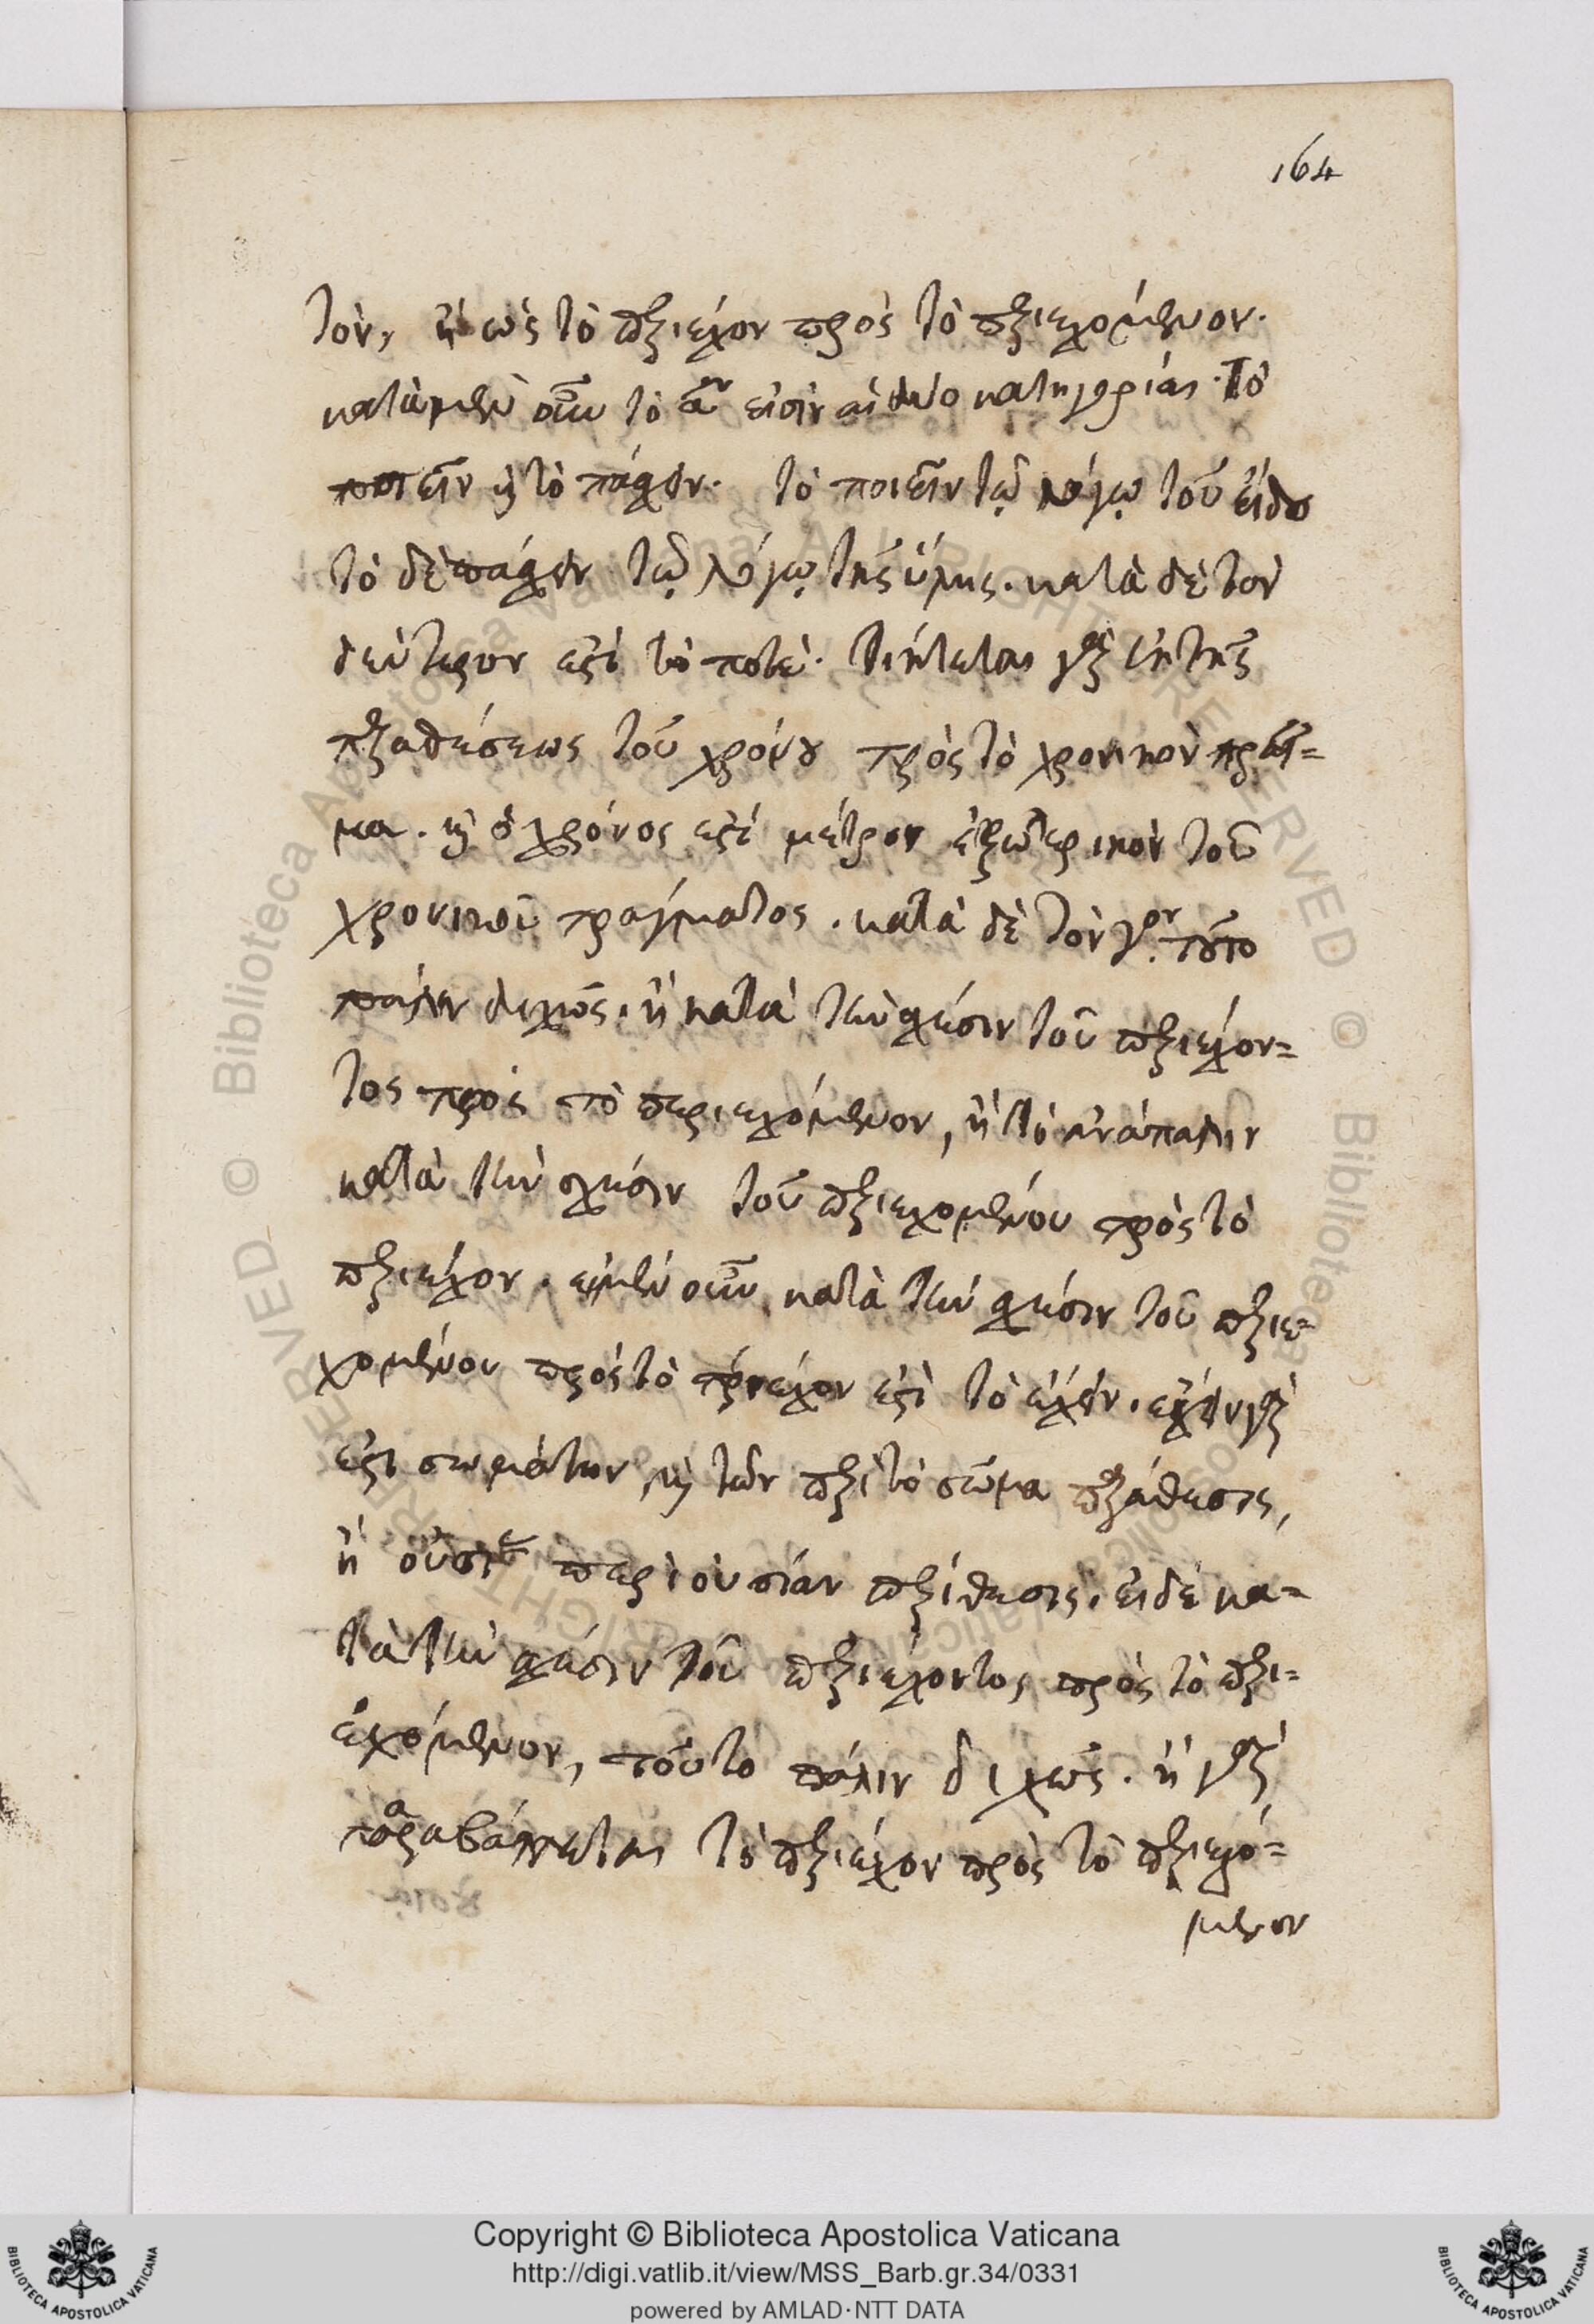 164
τὸν, ἢ ὡς τὸ περιέχον πρὸς τὸ περιεχόμενον.
κατὰ μὲν οὖν τὸ αον εἰσὶν αἱ δύο κατηγορίαι. Τὸ
ποιεῖν κ τὸ πάσχειν. τὸ ποιεῖν τῷ λόγῳ τοῦ εἴδους
τὸ δὲ πάσχειν τῷ λόγῳ τῆς ὕλης. κατὰ δὲ τὸν
δεύτερον ἐστὶ τὸ ποτέ. γὰρ ἐκ τῆς
παραθέσεως τοῦ χρόνου πρὸς τὸ χρονικὸν πρᾶγ=
μα. κ ὁ χρόνος ἐστὶ μέτρον ἐξωτερικὸν τοῦ
χρονικοῦ πράγματος. κατὰ δὲ τὸν γον. τοῦτο
πάλιν διχῶς. ἢ κατὰ τὴν σχέσιν τοῦ περιέχον=
τος πρὸς τὸ περιεχόμενον, ἢ τὸ ἀνάπαλιν
κατὰ τὴν σχέσιν τοῦ περιεχομένου πρὸς τὸ
περιέχον. εἰ μὲν οὖν κατὰ τὴν σχέσιν τοῦ περιε=
χομένου πρὸς τὸ περιέχον ἐστὶ τὸ ἔχειν. ἔχειν γὰρ
ἐστι σωμάτων κ τῶν περὶ τὸ σῶμα παράθεσις,
ἢ οὐσίας περὶ οὐσίαν περίθεσις. εἰ δὲ κα=
τὰ τὴν σχέσιν τοῦ περιέχοντος πρὸς τὸ περι=
εχόμενον, τοῦτο πάλιν διχῶς. ἢ γὰρ
παραβάλλεται τὸ περιέχον πρὸς τὸ περιεχό=
μενον
Copyright © Biblioteca Apostolica Vaticana
http://digi.vatlib.it/view/MSS_Barb.gr.34/0331
powered by AMLAD·NTT DATA
BIBLIOTECA APOSTOLICA VATICANA
BIBLIOTECA APOSTOLICA VATICANA